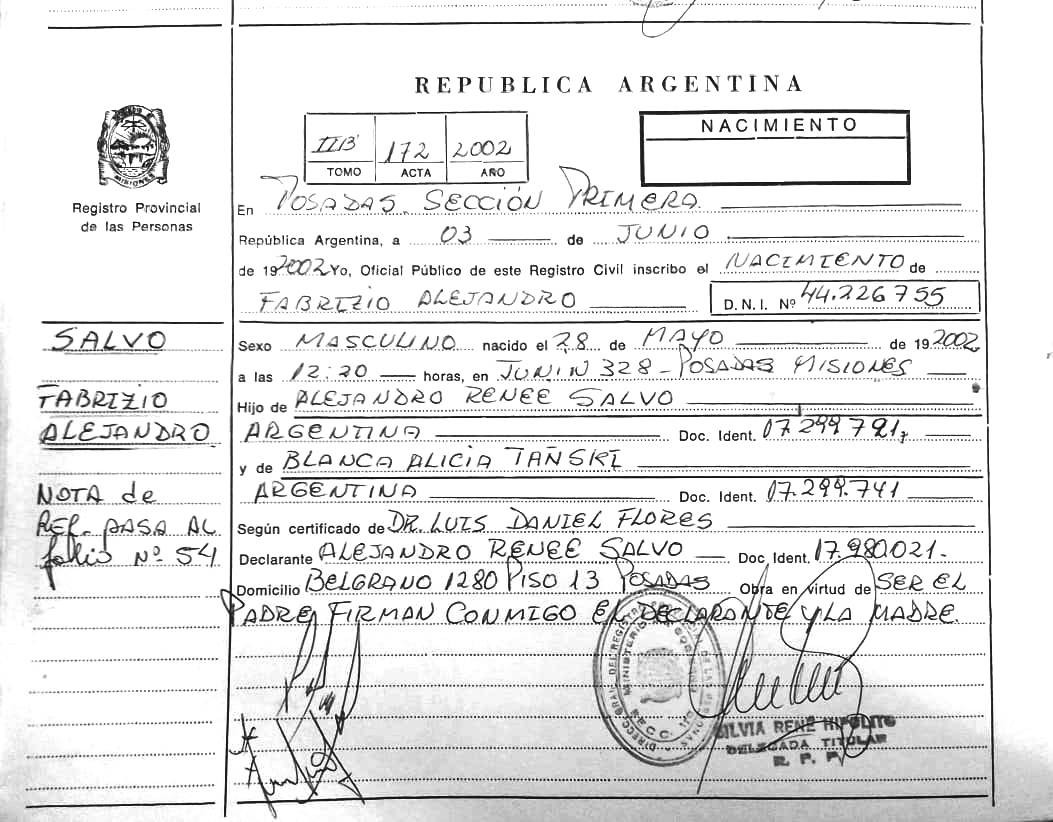 REPUBLICA ARGENTINA
IIB 172 2002
TOMO ACTA AÑO
NACIMIENTO
MISIONES
Registro Provincial
de las Personas
En POSADAS. SECCIÓN PRIMERA.
República Argentina, a 03 de JUNIO
de 192002 Yo, Oficial Público de este Registro Civil inscribo el NACIMIENTO de
FABRIZIO ALEJANDRO D.N.I. Nº 44.226755
SALVO
FABRIZIO
ALEJANDRO
NOTA de
REF. PASA AL
folio Nº 54
Sexo MASCULINO nacido el 28 de MAYO de 192002
a las 12:20 horas, en JUNIN 328 - POSADAS MISIONES
Hijo de ALEJANDRO RENEE SALVO
ARGENTINA Doc. Ident.
y de BLANCA ALICIA TAÑSKI
ARGENTINA Doc. Ident. 17.299.741
Según certificado de DR. LUIS DANIEL FLORES
Declarante ALEJANDRO RENEE SALVO Doc Ident. 17.980.021-
Domicilio BELGRANO 1280 PISO 13 POSADAS Obra en virtud de SER EL
PADRE FIRMAN CONMIGO EL DECLARANTE Y LA MADRE.
SILVIA RENÉ HIPOLITO
DELEGADA TITULAR
R. P. P.